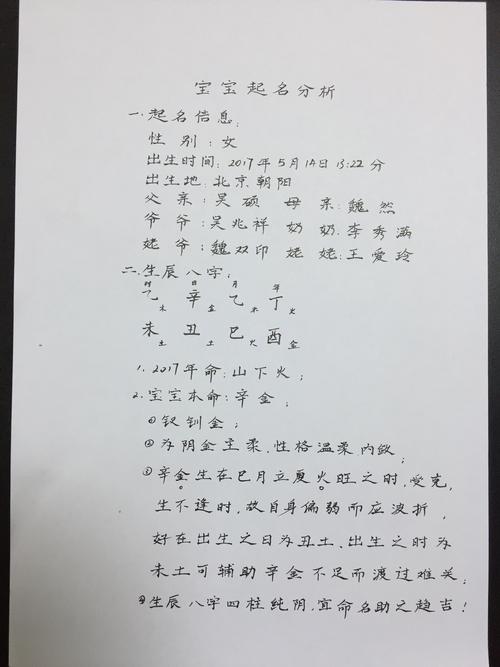 宝宝起名分析
一.起名信息:
性 别:女
出生时间:2017年5月14日13:22分
出生地:北京朝阳
父 亲:吴硕 母 亲:魏 然
爷 爷:吴兆祥 奶 奶:李秀涵
姥 爷:魏双印 姥 姥:王爱玲
二.生辰八字:
时 日 月 年
乙木 辛金 乙木 丁火
未土 丑土 巳火 酉金
1.2017年命:山下火;
2.宝宝本命:辛金;
①钗钏金;
②为阴金主柔,性格温柔内敛;
③辛金生在巳月立夏火旺之时,受克,
生不逢时,故自身偏弱而应波折,
好在出生之日为丑土、出生之时为
未土可辅助辛金不足而渡过难关;
④生辰八字四柱纯阴,宜命名助之趋吉!